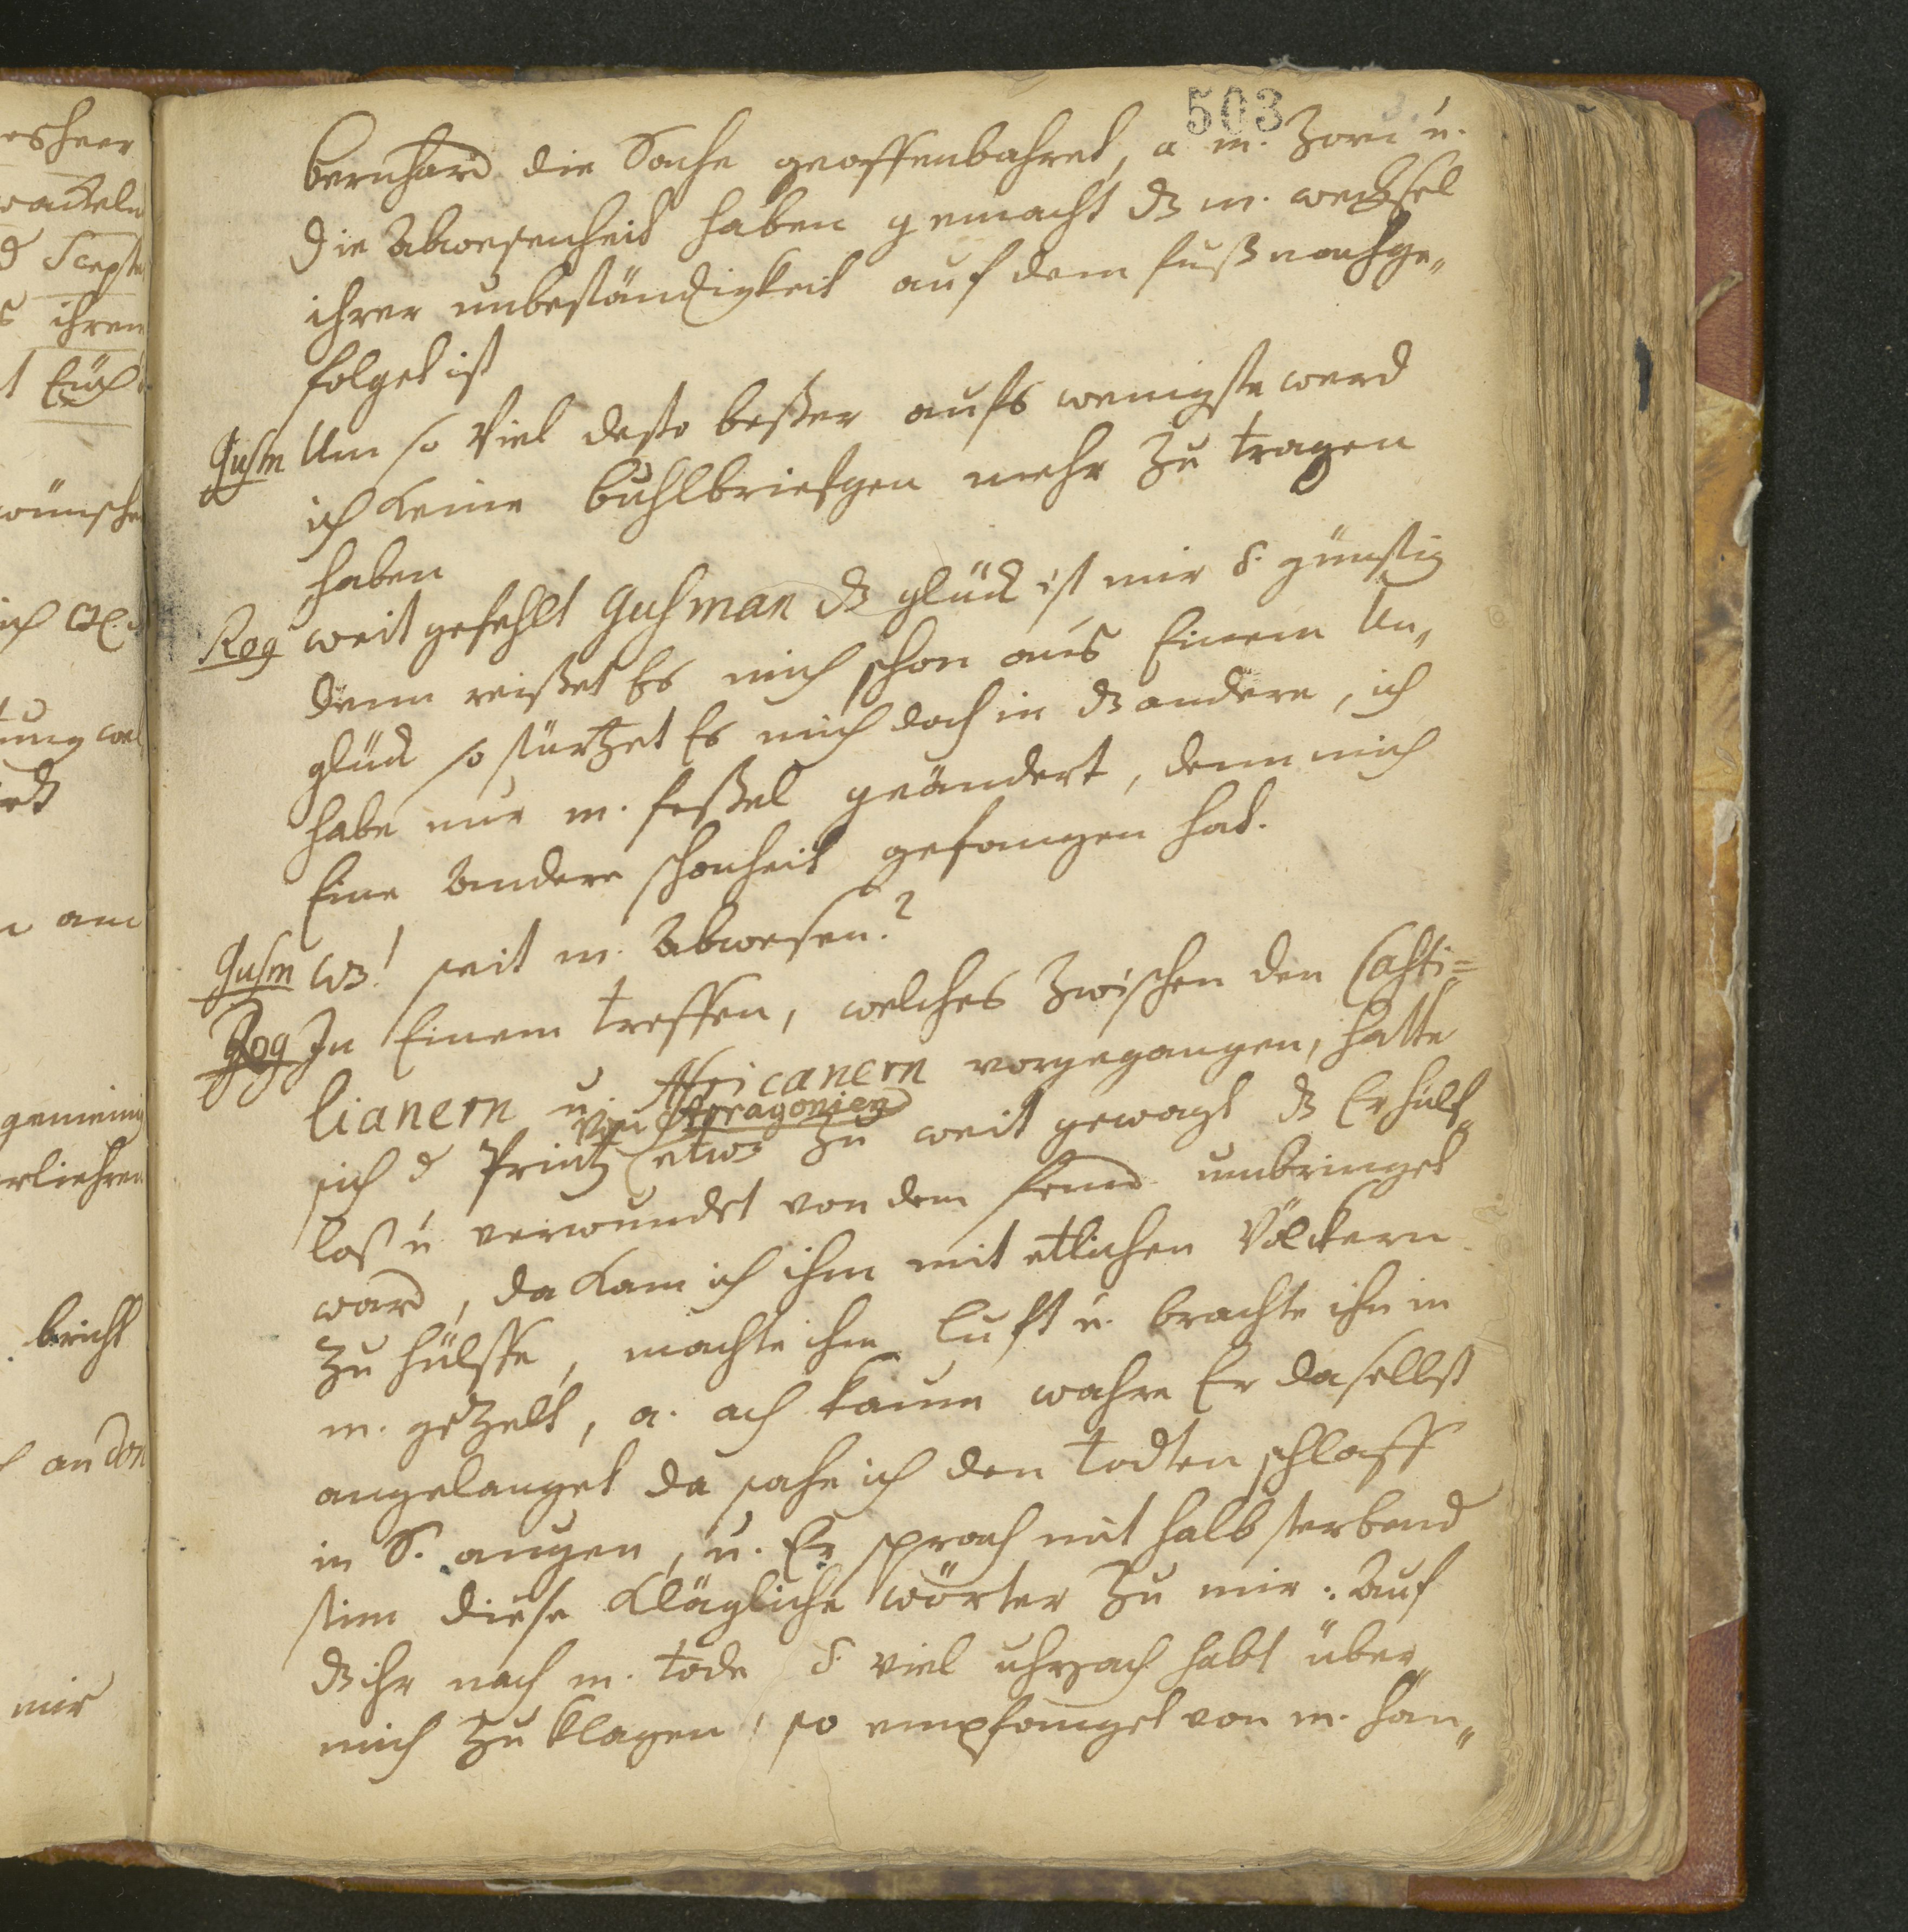 503
Bernhard die Sache geoffenbahret, a m. Zorn u.
die Abwesenheit haben gemacht dz m. wechsel
ihrer unbeständigkeit auf dem fuß nachge„
folget ist
Gusm Um so viel desto beßer aufs wenigste werd
ich keine buhlbriefgen mehr zu tragen
haben
Rog weit gefehlt Gusman dz glück ist mir s. günstig
denn reißet Es mich schon aus Einem Un„
glück so stürtzet Es mich doch in dz andere, ich
habe nur m. feßel geändert, denn mich
Eine Andere schonheit gefangen hat.
Gusm wz! seit m. Abwesen?
Rog In Einem treffen, welches zwischen den Casti=
lianern u. Africanern vorgegangen, hatte
von Arragonien
sich d Printz etwz zu weit gewagt dz Er hülf„
loß u. verwundet von dem feind umbringet
ward, da kam ich ihm mit etlichen Völckern
zu hülffe, machte ihm lufft u. brachte ihn in
m. gezelt, a. ach kaum wahre Er daselbst
angelanget da sahe ich den todten schlaff
in S. augen, u. Er sprach mit halb sterbend
stim diese klägliche wörter zu mir: Auf
dz ihr nach m. tode s. viel uhrsach habt über
mich zu klagen, so empfanget von m. hän„
esheer
wackeln
d Scepte
s ihrem
wünsche
am
gemeinig
rliehren
bricht
an don
mir